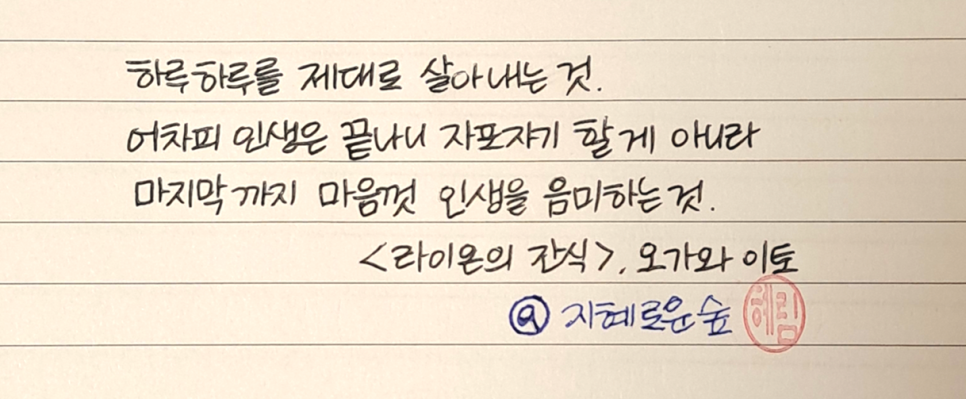 하루하루를 제대로 살아내는 것.
어차피 인생은 끝나니 자포자기 할 게 아니라
마지막까지 마음껏 인생을 음미하는 것.
<라이온의 간식>, 오가와 이토
@ 지혜로운숲 혜림